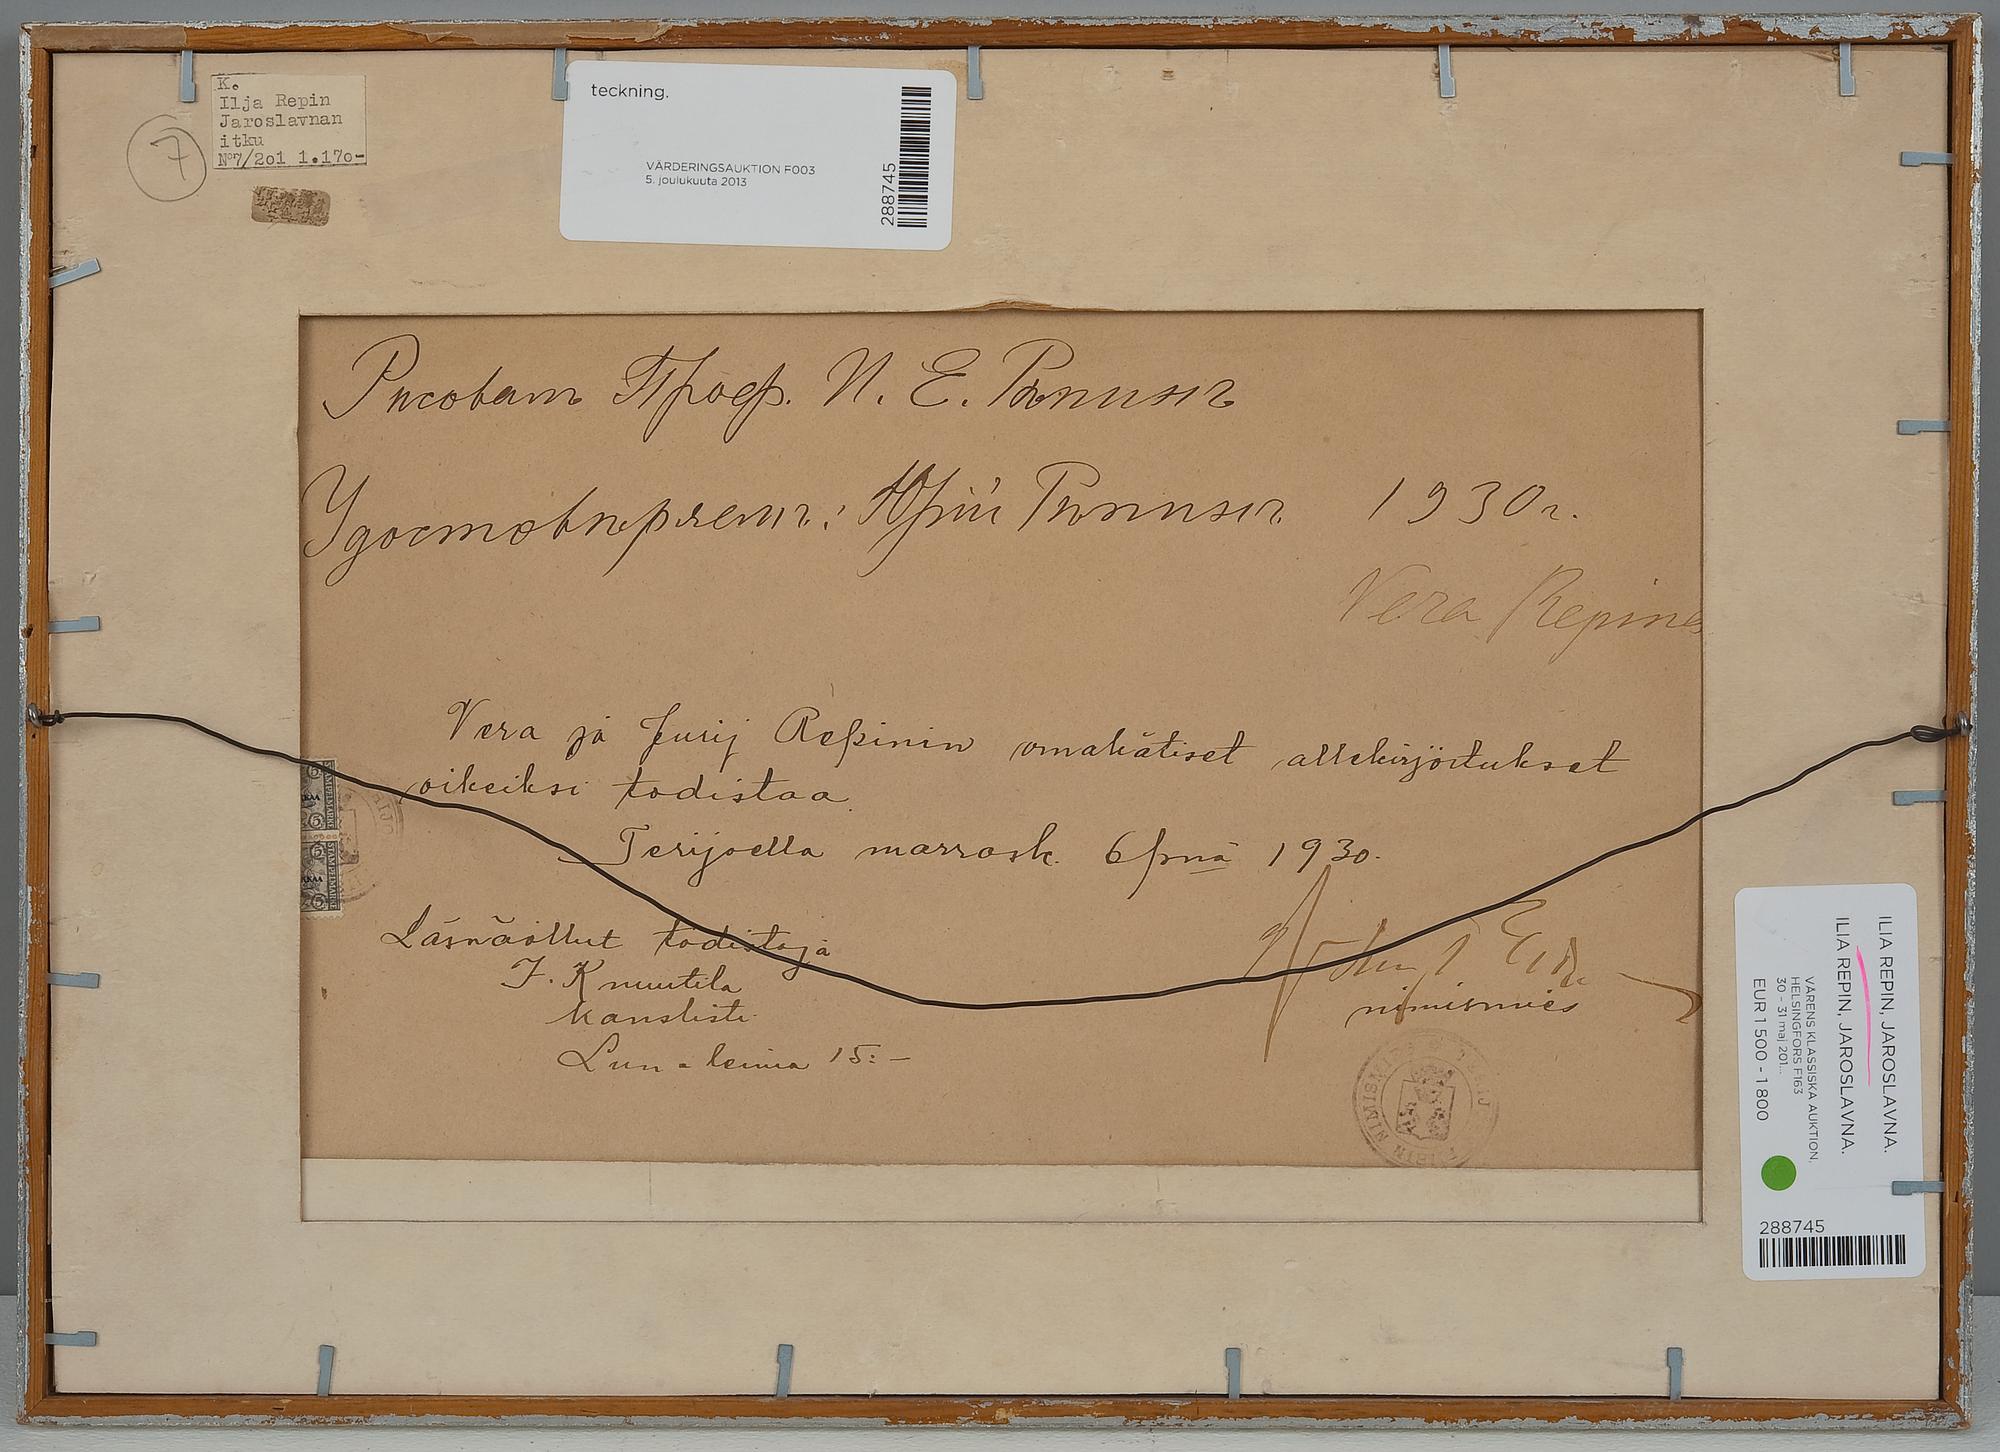 K.
Ilja Repin
Jaroslavnan
itku
N°7/201 1.170-
7
teckning.
VÄRDERINGSAUKTION F003
5. joulukuuta 2013
288745
Рисовалъ Проф. И. Е. Рѣпинъ
Удостовѣряетъ: Юрій Рѣпинъ 1930 г.
Vera Repine
Vera ja Jurij Repinin omakätiset allekirjoitukset
oikeiksi todistaa
Terijoella marrask. 6 pnä 1930.
Läsnäollut todistaja
J. Knuutila
kanslisti
Lunaleima 15:-
nimismies
STÄMPELMARKE
STÄMPELMARKE
5
5
ILIA REPIN, JAROSLAVNA.
ILIA REPIN, JAROSLAVNA.
VÅRENS KLASSISKA AUKTION,
HELSINGFORS F163
30 - 31 maj 201...
EUR 1 500 - 1 800
288745